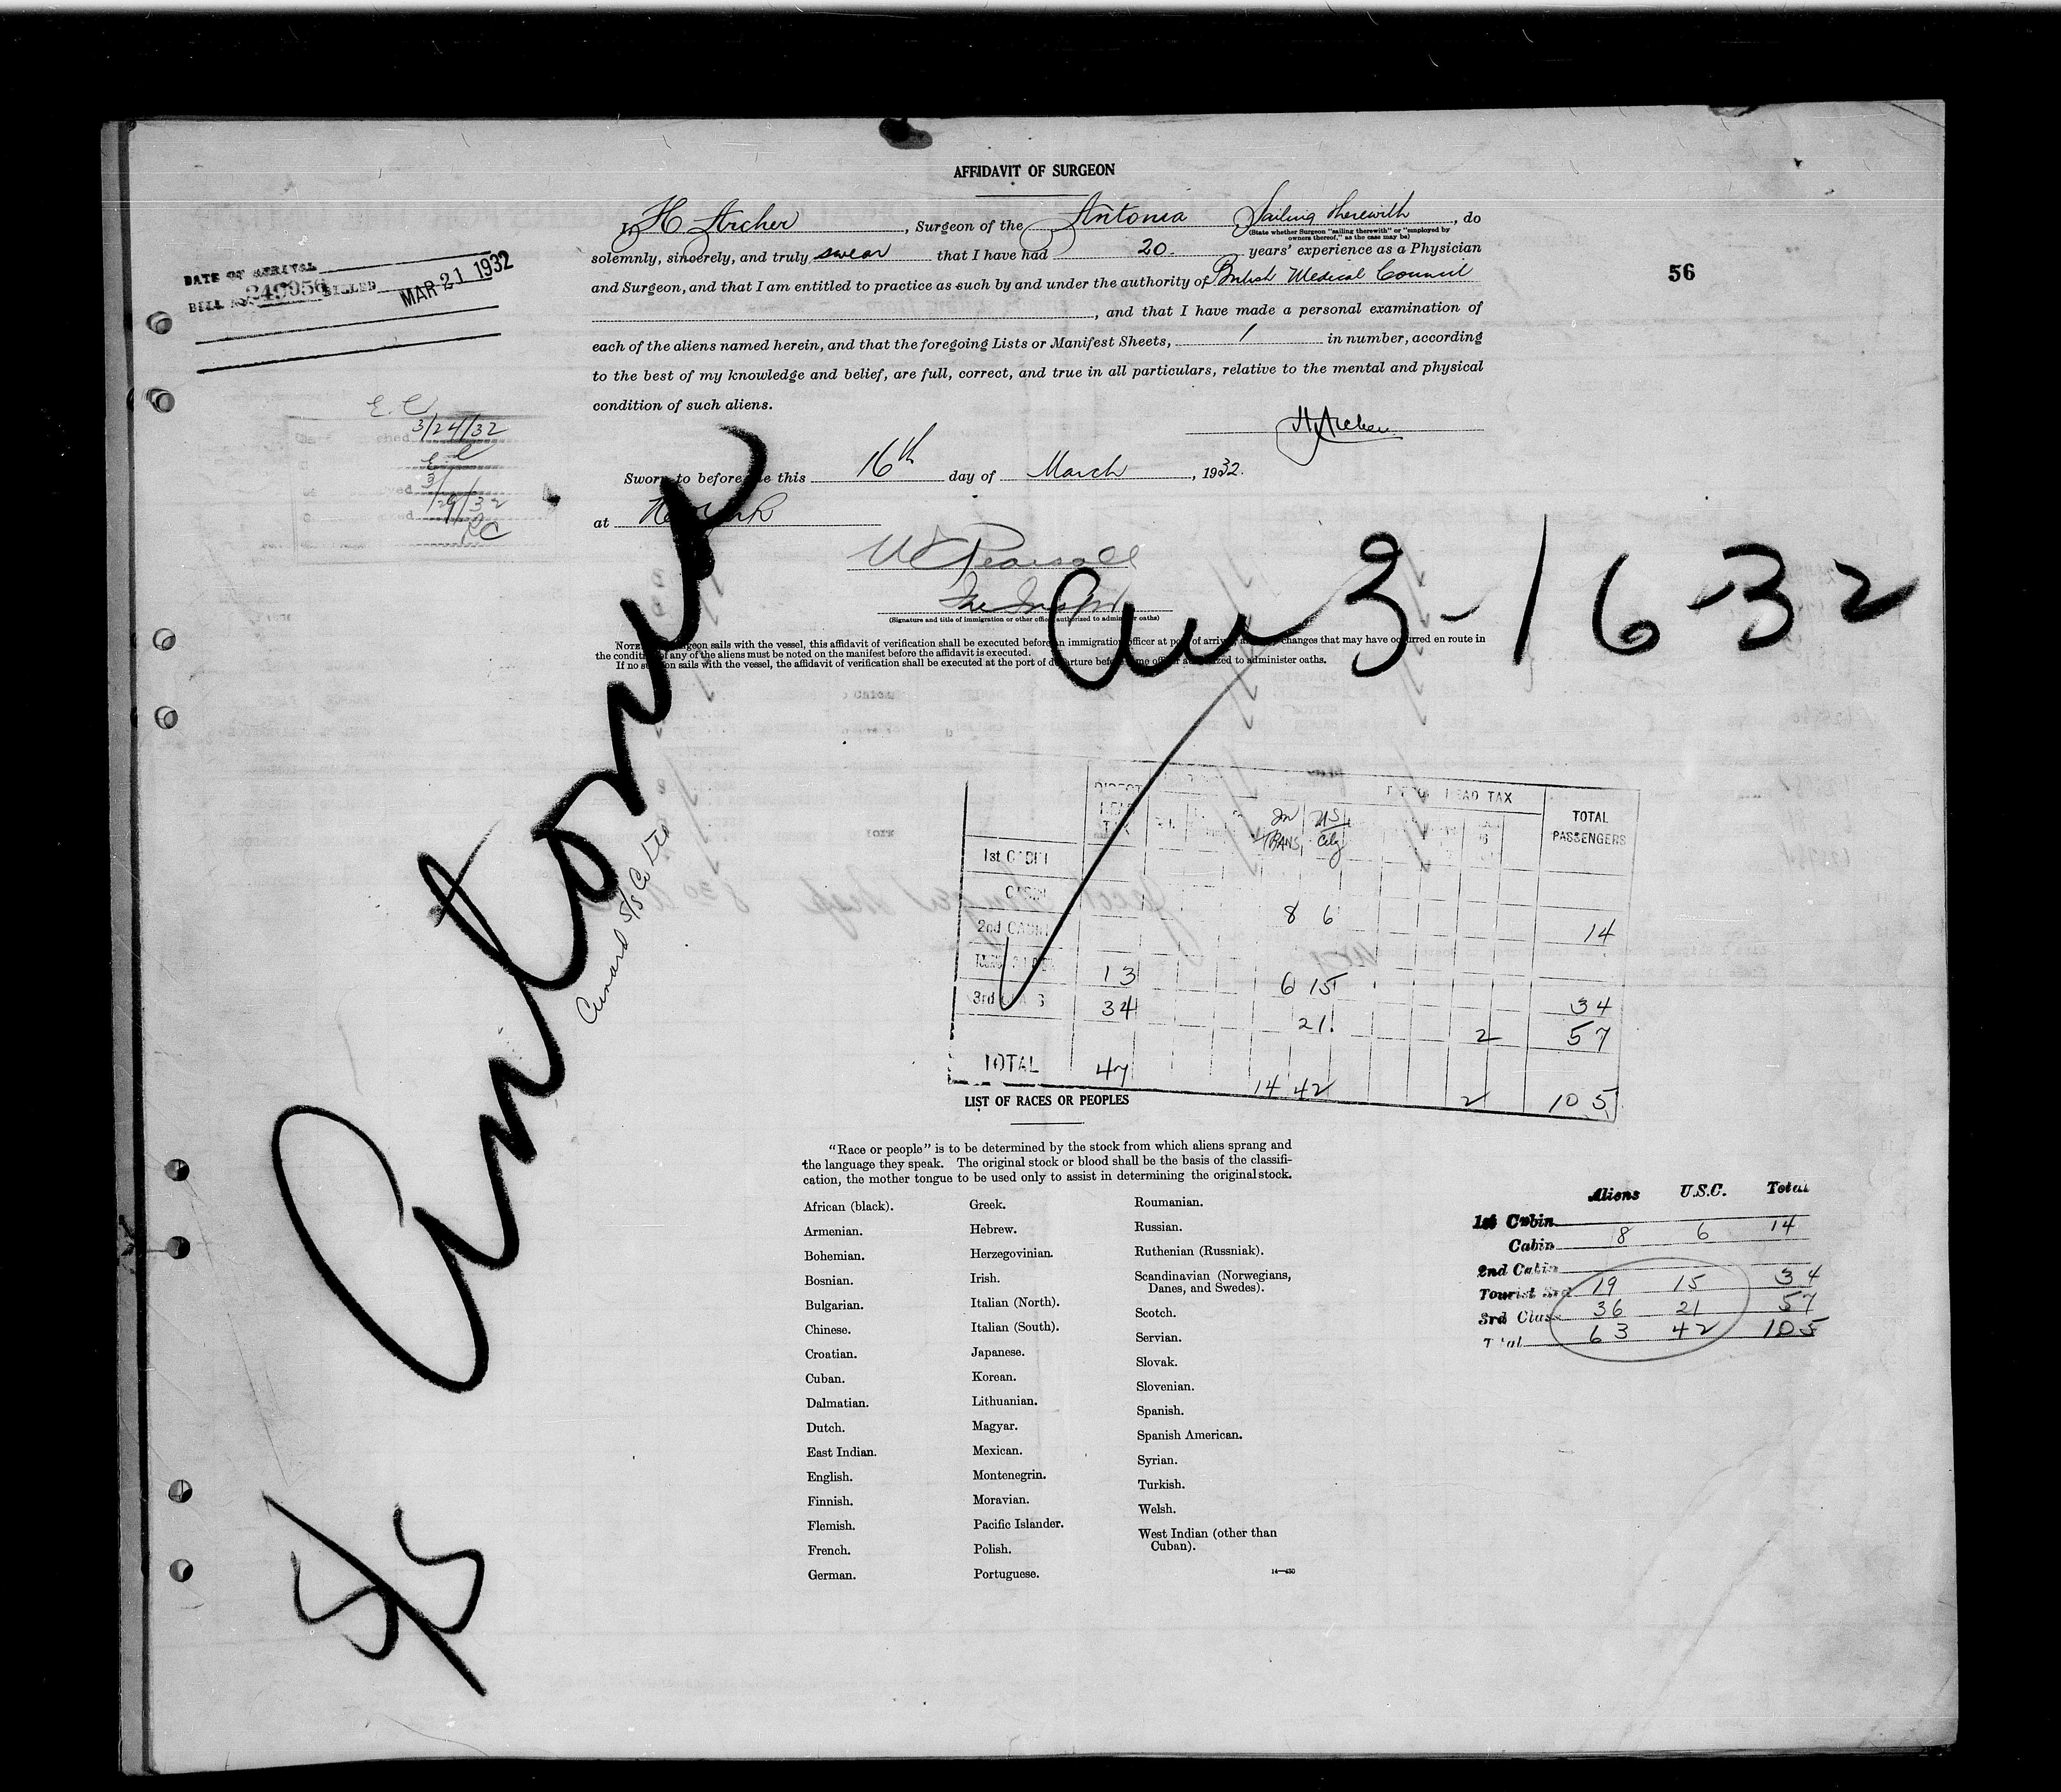 AFFIDAVIT OF SURGEON
I, H Archer, Surgeon of the Antonia Sailing therewith, do
(State whether Surgeon "sailing therewith" or "employed by
owners thereof," as the case may be)
solemnly, sincerely, and truly swear that I have had 20. years' experience as a Physician
and Surgeon, and that I am entitled to practice as such by and under the authority of British Medical Council
, and that I have made a personal examination of
each of the aliens named herein, and that the foregoing Lists or Manifest Sheets, 1 in number, according
to the best of my knowledge and belief, are full, correct, and true in all particulars, relative to the mental and physical
condition of such aliens.
H Archer
56
DATE OF ARRIVAL
BILL NO. 249056 BILLED MAR 21 1932
E.C
3/24/32
3/29/32
Sworn to before me this 16th day of March, 1932.
at New York
W Pearsall
(Signature and title of immigration or other officer authorized to administer oaths)
Arr 3-16-32
NOTE.—If surgeon sails with the vessel, this affidavit of verification shall be executed before an immigration officer at port of arrival, changes that may have occurred en route in
the condition of any of the aliens must be noted on the manifest before the affidavit is executed.
If no surgeon sails with the vessel, the affidavit of verification shall be executed at the port of departure before some officer authorized to administer oaths.
S/S Antonia
Cunard S/S Co Ltd
DIRECT HEAD TAX In TRANS US City HEAD TAX TOTAL PASSENGERS
1st CABIN
CABIN 8 6 14
2nd CABIN
13 6 15 34
3rd CLASS 34 21 2 57
TOTAL 47 14 42 2 105
LIST OF RACES OR PEOPLES
"Race or people" is to be determined by the stock from which aliens sprang and
the language they speak. The original stock or blood shall be the basis of the classifi-
cation, the mother tongue to be used only to assist in determining the original stock.
African (black).
Armenian.
Bohemian.
Bosnian.
Bulgarian.
Chinese.
Croatian.
Cuban.
Dalmatian.
Dutch.
East Indian.
English.
Finnish.
Flemish.
French.
German.
Greek.
Hebrew.
Herzegovinian.
Irish.
Italian (North).
Italian (South).
Japanese.
Korean.
Lithuanian.
Magyar.
Mexican.
Montenegrin.
Moravian.
Pacific Islander.
Polish.
Portuguese.
Roumanian.
Russian.
Ruthenian (Russniak).
Scandinavian (Norwegians,
Danes, and Swedes).
Scotch.
Servian.
Slovak.
Slovenian.
Spanish.
Spanish American.
Syrian.
Turkish.
Welsh.
West Indian (other than
Cuban).
14—430
Aliens U.S.C. Total
1st Cabin
Cabin 8 6 14
2nd Cabin
Tourist 3rd 19 15 34
3rd Class 36 21 57
Total 63 42 105